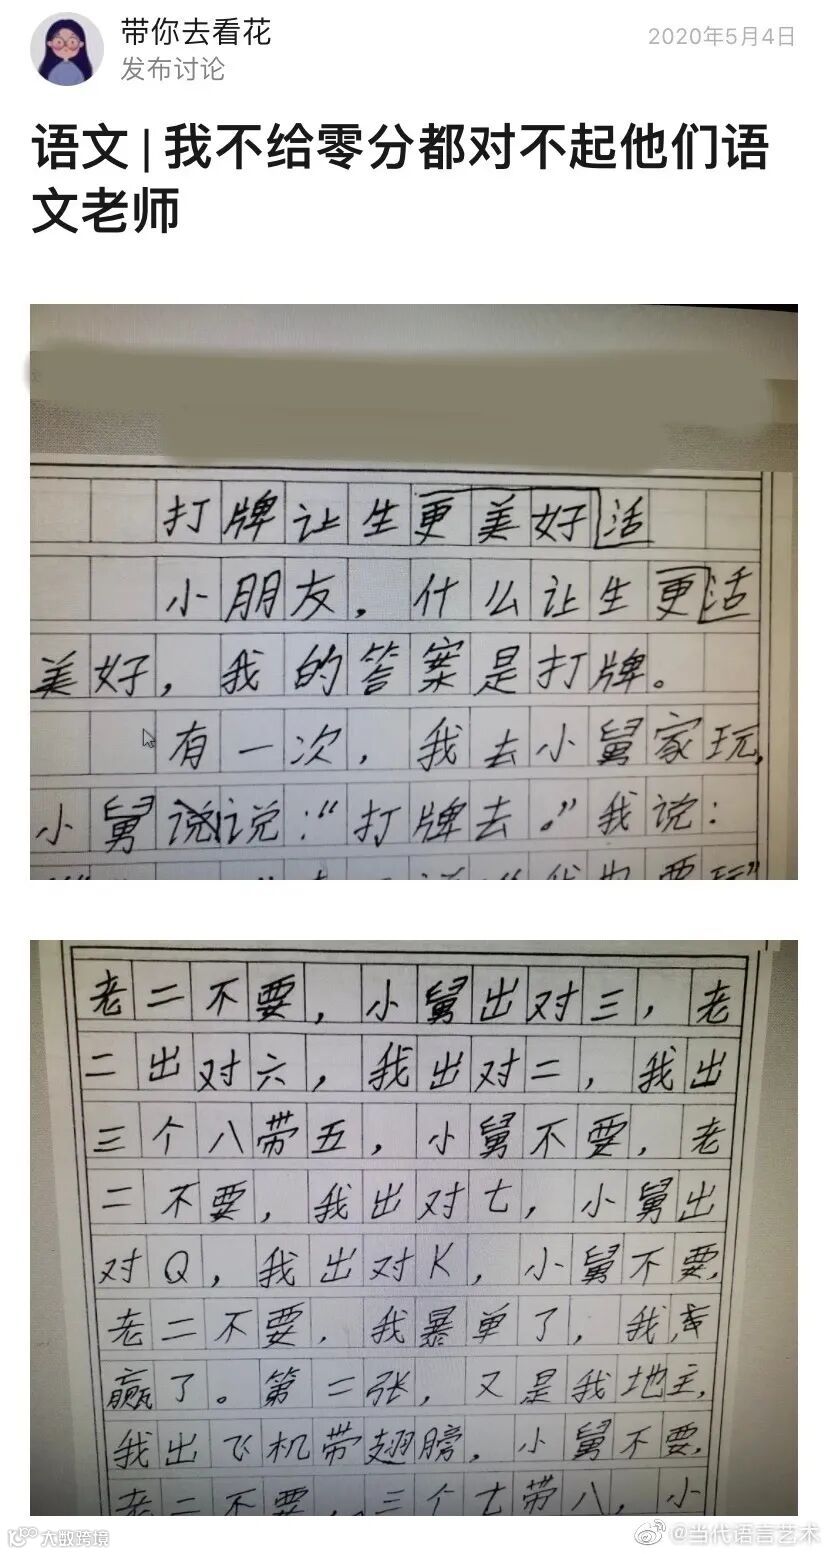 带你去看花
2020年5月4日
发布讨论
语文|我不给零分都对不起他们语
文老师
打牌让生更美好活
小朋友，什么让生更活
美好，我的答案是打牌。
有一次，我去小舅家玩，
小舅说说：“打牌去。”我说：
我也要玩”
老二不要，小舅出对三，老
二出对六，我出对二，我出
三个八带五，小舅不要，老
二不要，我出对七，小舅出
对Q，我出对K，小舅不要，
老二不要，我暴单了，我
赢了。第二张，又是我地主，
我出飞机带翅膀，小舅不要，
老二不要，三个七带八，小
大数跨境
@当代语言艺术